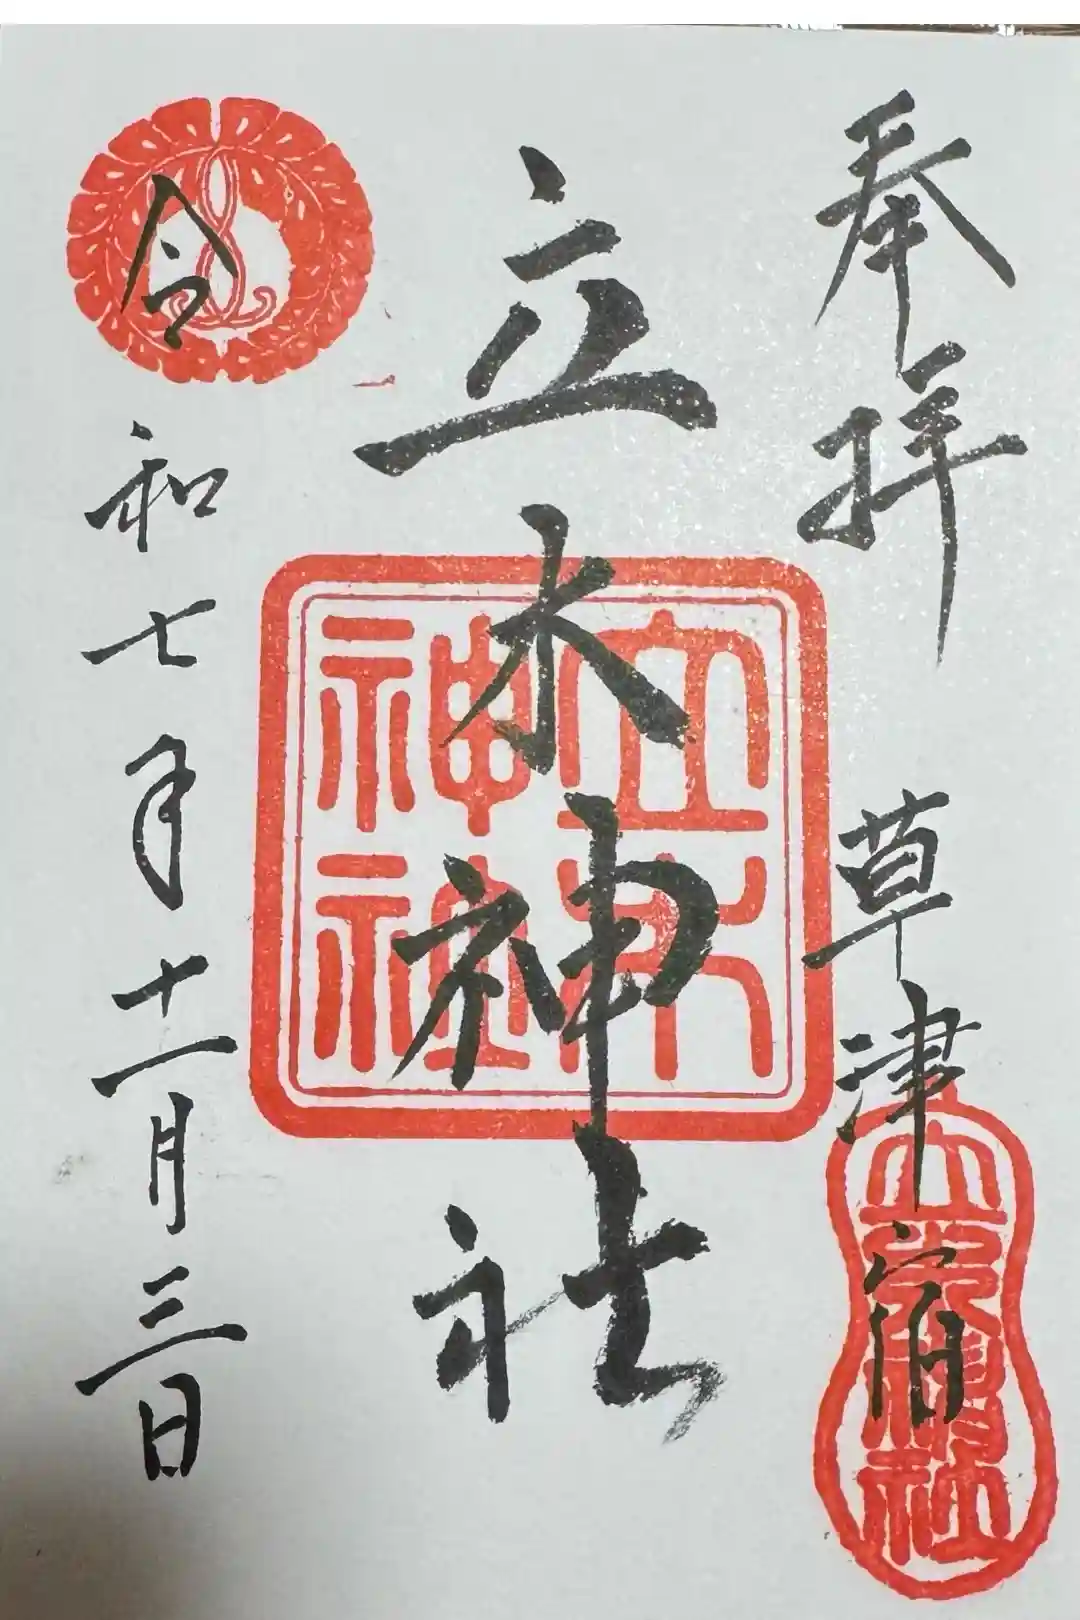 奉拝
草津宿
立木神社
立木神社
立木神社
令和七年十一月三日